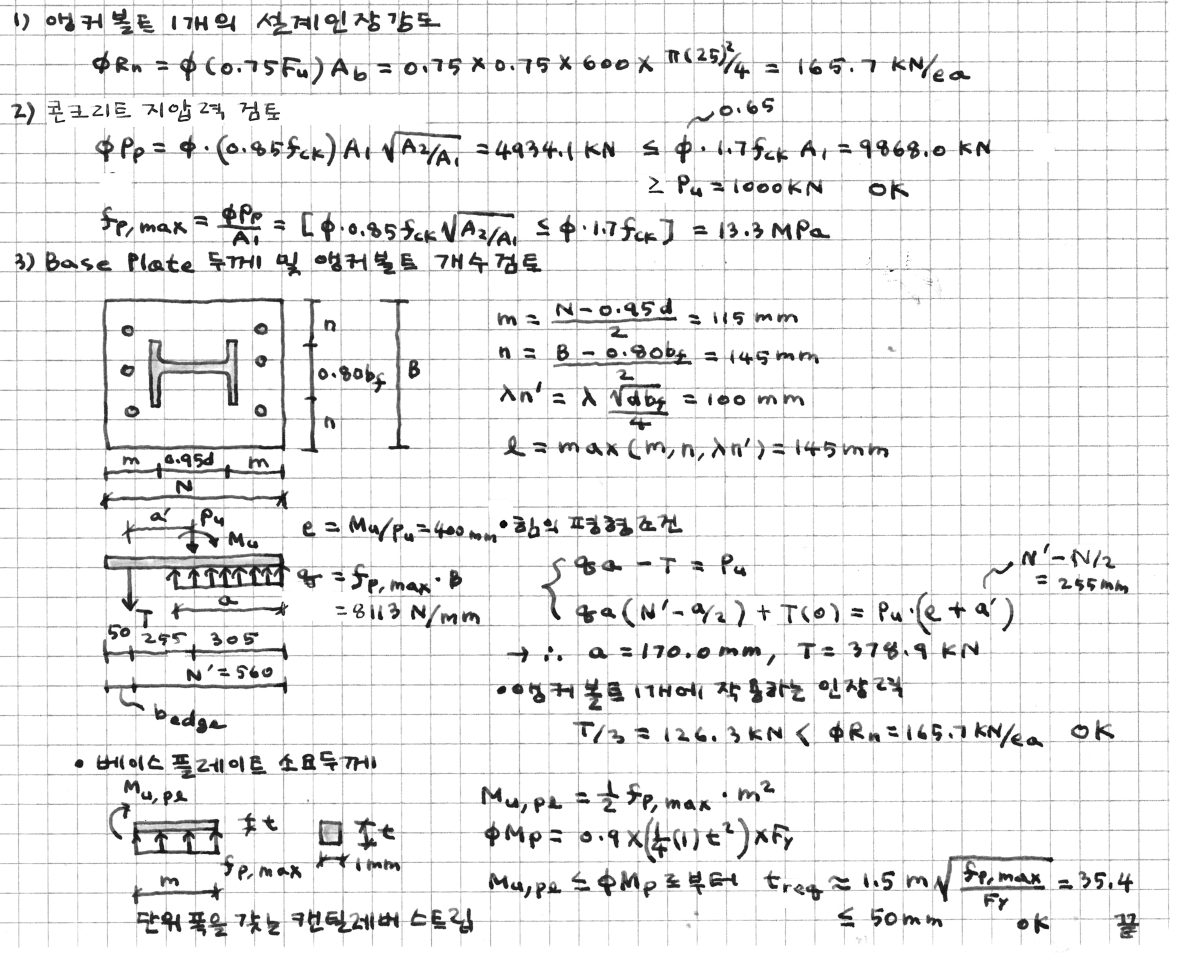 1) 앵커볼트 1개의 설계인장강도
ϕRn = ϕ(0.75Fu)Ab = 0.75×0.75×600×π(25)²/4 = 165.7 KN/ea
2) 콘크리트 지압력 검토
0.65
ϕPp = ϕ·(0.85fck)A1√(A2/A1) = 4934.1 KN ≤ ϕ·1.7fck A1 = 9868.0 KN
≥ Pu = 1000KN OK
fp,max = ϕPp/A1 = [ϕ·0.85fck√(A2/A1) ≤ ϕ·1.7fck] = 13.3 MPa
3) Base Plate 두께 및 앵커볼트 개수검토
n
0.80bf
n
B
m
0.95d
m
N
m = (N-0.95d)/2 = 115 mm
n = (B-0.80bf)/2 = 145 mm
λn' = λ √(dbf)/4 = 100 mm
l = max(m, n, λn') = 145 mm
a'
Pu
Mu
e = Mu/Pu = 400mm
q = fp,max·B
= 8113 N/mm
T
a
50
255
305
N' = 560
bedge
• 힘의 평형조건
qa - T = Pu
N' - N/2
= 255mm
qa(N' - a/2) + T(0) = Pu·(e + a')
→ ∴ a = 170.0 mm, T = 378.9 KN
• 앵커볼트 1개에 작용하는 인장력
T/3 = 126.3 KN < ϕRn = 165.7 KN/ea OK
• 베이스 플레이트 소요두께
Mu,pl
t
t
fp,max
1mm
m
단위폭을 갖는 캔틸레버 스트립
Mu,pl = ½ fp,max · m²
ϕMp = 0.9×(¼(1)t²)×Fy
Mu,pl ≤ ϕMp 로부터 treq ≈ 1.5 m√(fp,max/Fy) = 35.4
≤ 50mm OK 끝